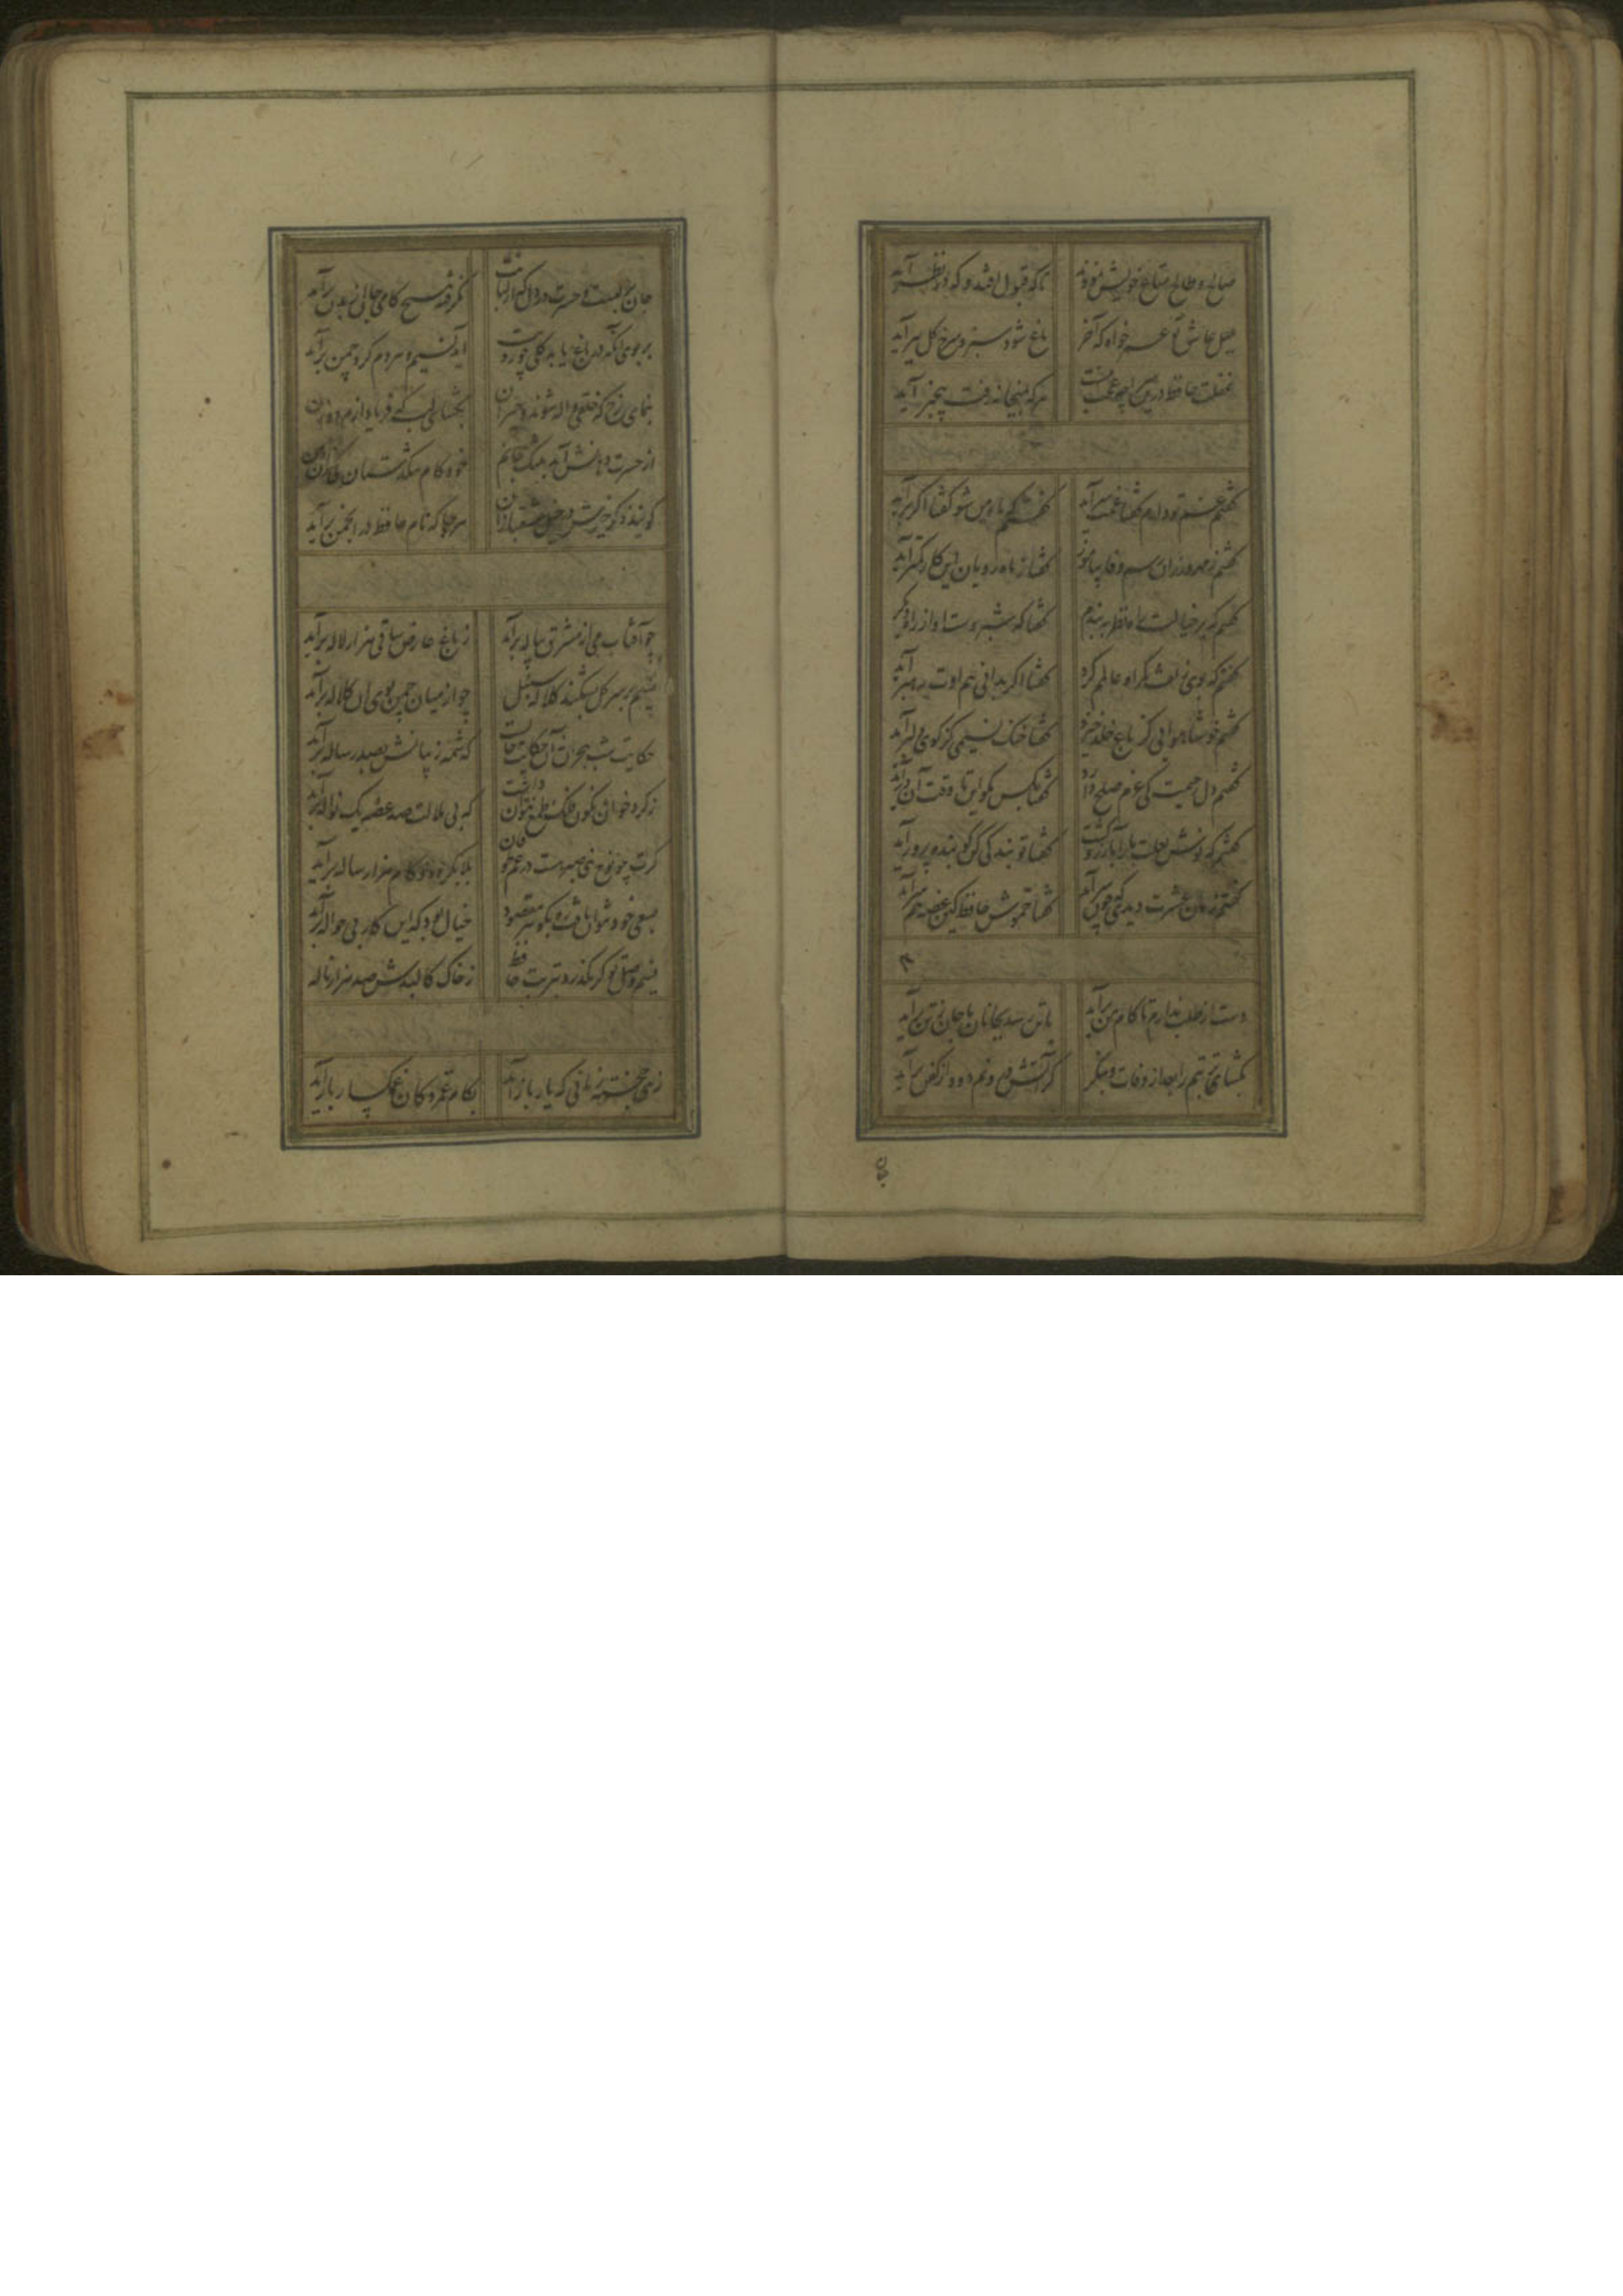 صالح و طالح متاع خویش نمودند
تا که قبول افتد و که در نظر آید
بلبل عاشق تو عمر خواه که آخر
باغ شود سبز و سرخ گل ببر آید
غفلت حافظ درین سراچه عجب نیست
هر که بمیخانه رفت بیخبر آید
گفتم غم تو دارم گفتا غمت سر آید
گفتم که ماه من شو گفتا اگر برآید
گفتم ز مهرورزان رسم وفا بیاموز
گفتا ز ماه رویان این کار کمتر آید
گفتم که بر خیالت راه نظر ببندم
گفتا که شبروست او از راه دیگر آید
گفتم که بوی زلفت گمراه عالمم کرد
گفتا اگر بدانی هم اوت رهبر آید
گفتم خوشا هوایی کز باغ خلد خیزد
گفتا خنک نسیمی کز کوی دلبر آید
گفتم دل رحیمت کی عزم صلح دارد
گفتا مگوی با کس تا وقت آن درآید
گفتم که نوش لعلت ما را بآرزو کشت
گفتا تو بندگی کن کو بنده پرور آید
گفتم زمان عشرت دیدی که چون سر آمد
گفتا خموش حافظ کین غصه هم سر آید
دست از طلب ندارم تا کام من برآید
یا تن رسد بجانان یا جان ز تن برآید
بگشای تربتم را بعد از وفات و بنگر
کز آتش درونم دود از کفن برآید
جان
جان بر لبست و حسرت در دل که از لبانش
نگرفته هیچ کامی جان از بدن برآید
بر بوی آنکه در باغ یابد گلی چو رویت
آید نسیم و هر دم گرد چمن برآید
بنمای رخ که خلقی واله شوند و حیران
بگشای لب که فریاد از مرد و زن برآید
از حسرت دهانش آمد بتنگ جانم
خود کام تنگدستان کی زان دهن برآید
گویند ذکر خیرش در خیل عشقبازان
هر جا که نام حافظ در انجمن برآید
چو آفتاب می از مشرق پیاله برآید
ز باغ عارض ساقی هزار لاله برآید
نسیم بر سر گل بشکند کلاله سنبل
چو از میان چمن بوی آن کلاله برآید
حکایت شب هجران نه آن حکایت حالیست
که شمه ز بیانش بصد رساله برآید
ز گرد خوان نگون فلک طمع نتوان داشت
که بی ملالت صد غصه یک نواله برآید
گرت چو نوح نبی صبر هست در غم طوفان
بلا بگردد و کام هزار ساله برآید
بسعی خود نتوان یافت ره بگوهر مقصود
خیال بود که این کار بی حواله برآید
نسیم وصل تو گر بگذرد بتربت حافظ
ز خاک کالبدش صد هزار ناله
زهی خجسته زمانی که یار باز آید
بکام غمزدگان غمگسار باز آید